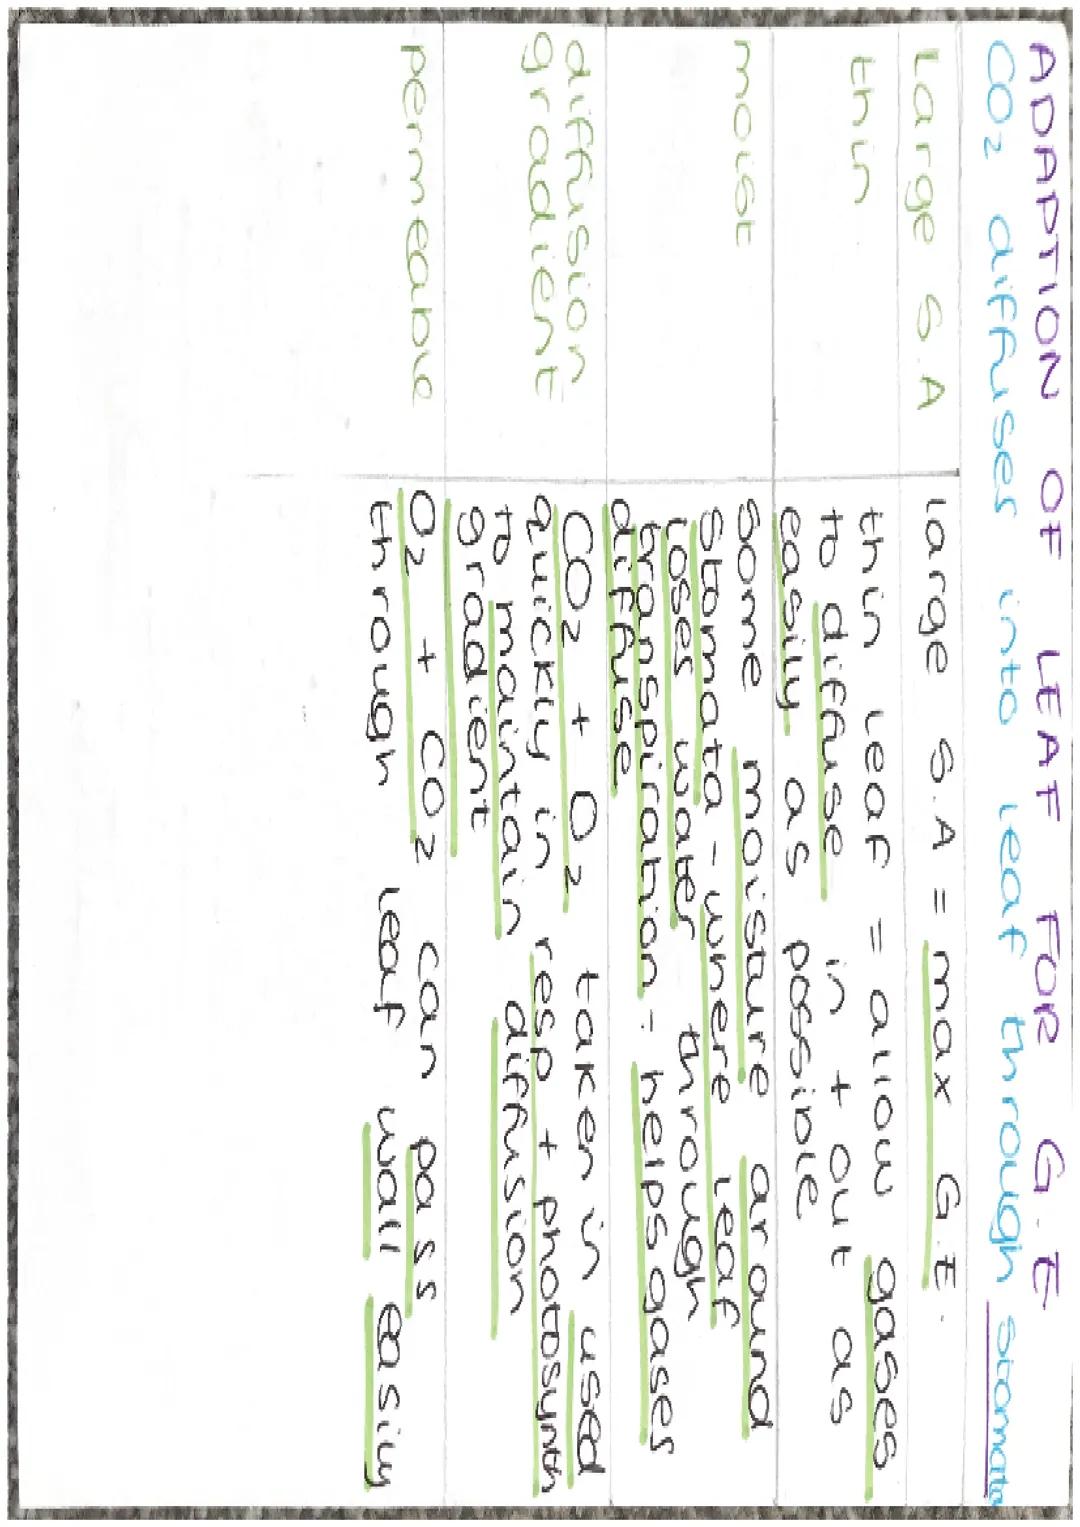 ADAPTION OF LEAF FOR G.E
CO2 diffuses into leaf through stomata
Large S.A
large S.A = max G.E.
thin
thin leaf = allow gases
to diffuse in + out as
easily as possible
moist
Some moisture around
stomata - where leaf
loses water through
transpiration = helps gases
diffuse
diffusion
gradient
CO2 + O2 taken in used
quickly in resp + photosynth
to maintain diffusion
gradient
permeable
O2 + CO2 can pass
through leaf wall easily